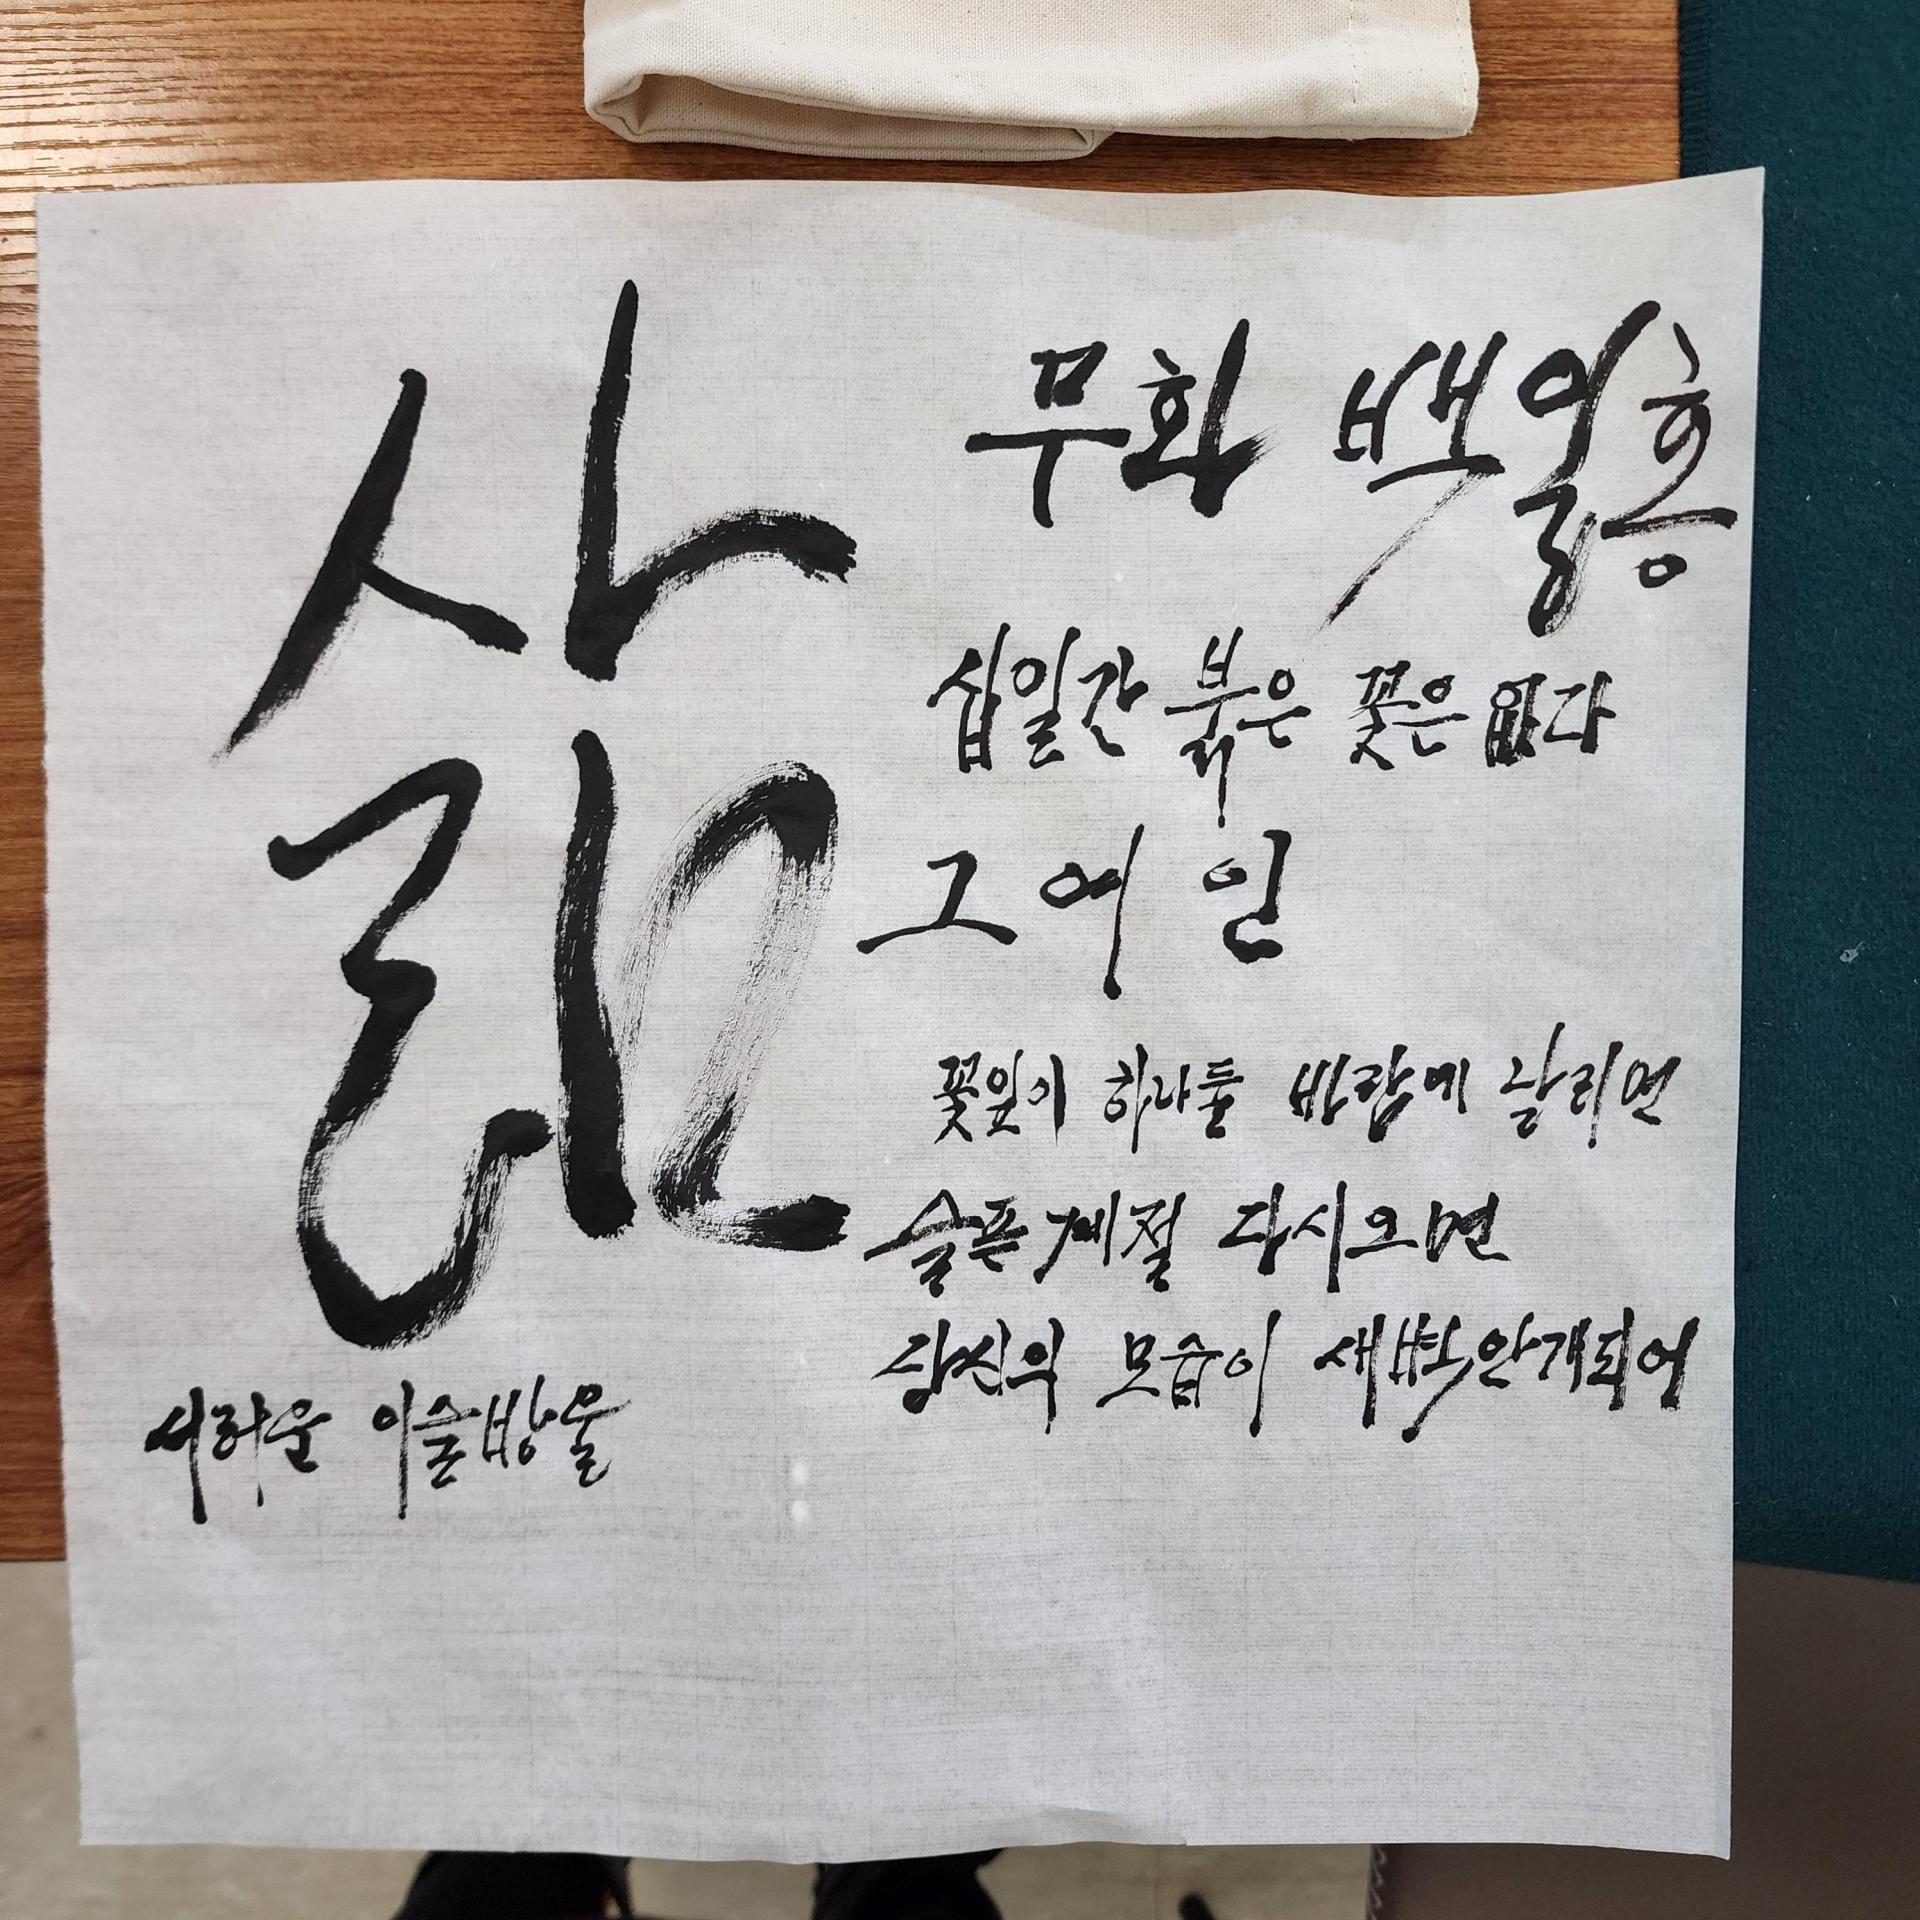 삶
무화 백일홍
십일간 붉은 꽃은 없다
그 여 인
꽃잎이 하나둘 바람에 날리면
슬픈계절 다시오면
당신의 모습이 새벽안개되어
서러운 이슬방울